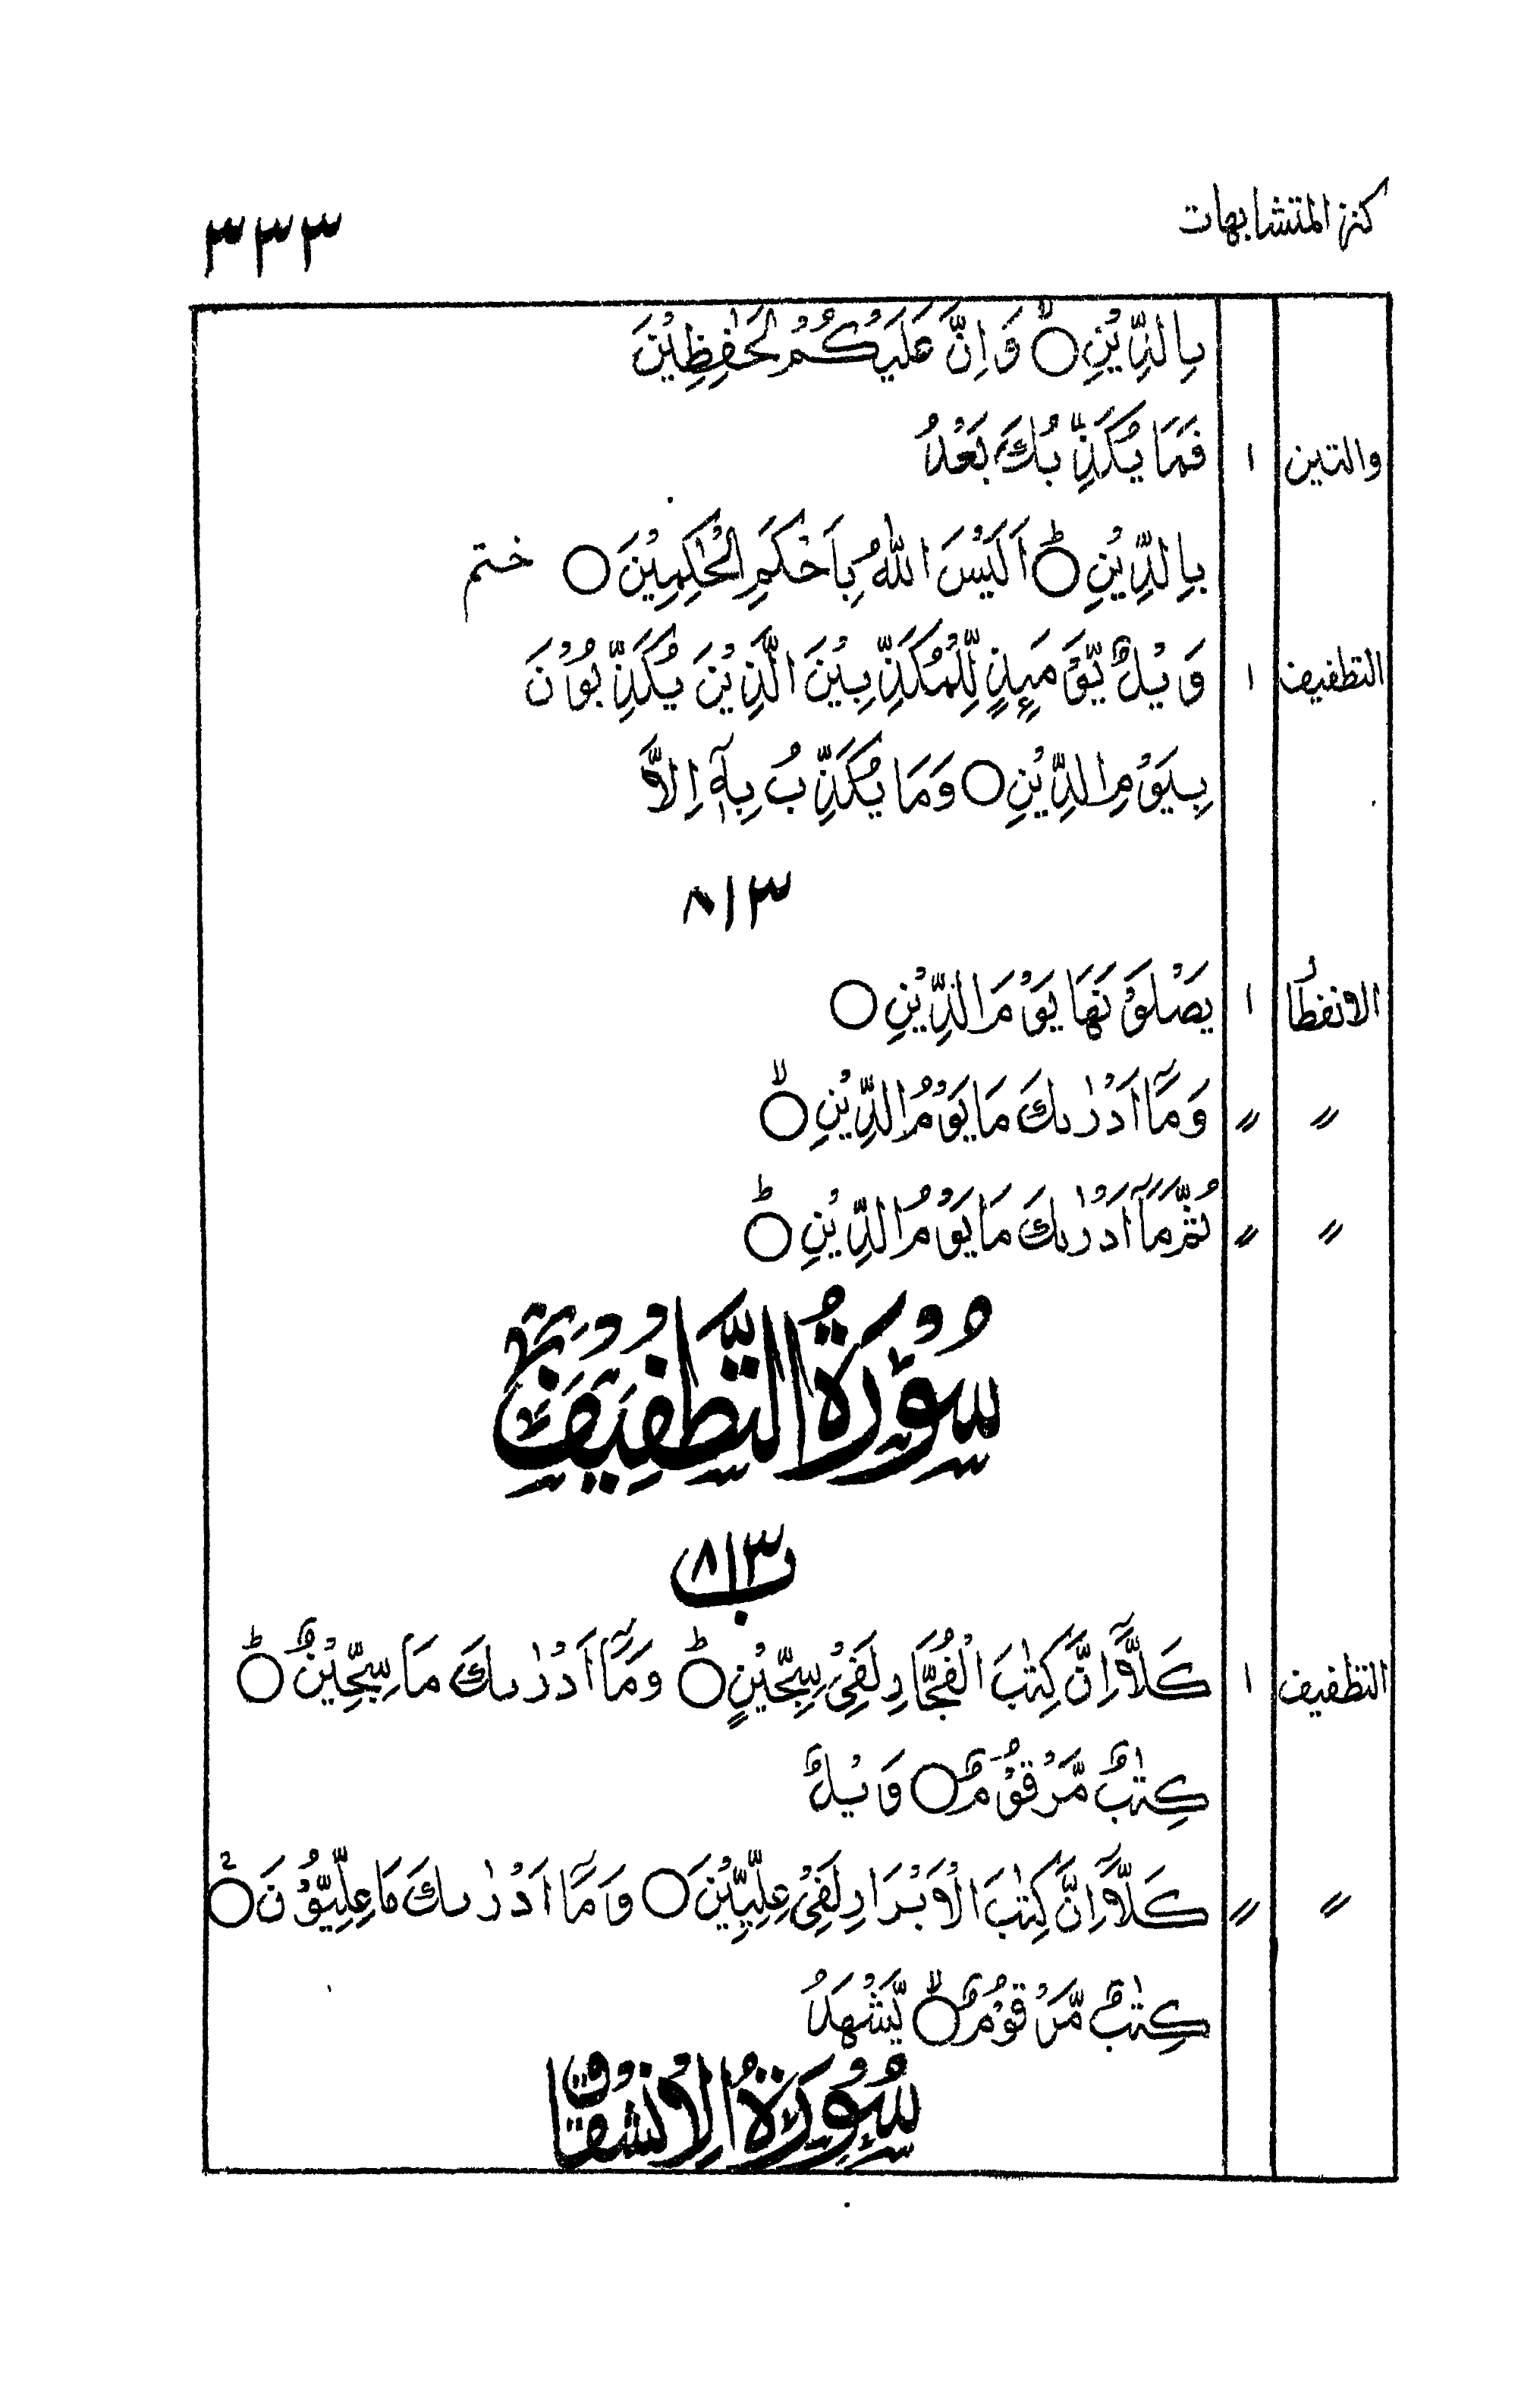 كنز المتشابهات ٣٣٣
بِالدِّيْنِ ○ۙ وَ اِنَّ عَلَيْكُمْ لَحٰفِظِيْنَ
والتين ١ فَمَا يُكَذِّبُكَ بَعْدُ
بِالدِّيْنِ ○ؕ اَلَيْسَ اللّٰهُ بِاَحْكَمِ الْحٰكِمِيْنَ ○ ختم
التطفيف ١ وَيْلٌ يَّوْمَئِذٍ لِّلْمُكَذِّبِيْنَ الَّذِيْنَ يُكَذِّبُوْنَ
بِيَوْمِ الدِّيْنِ ○ وَمَا يُكَذِّبُ بِهٖٓ اِلَّا
٨١٣
الانفطار ١ يَصْلَوْنَهَا يَوْمَ الدِّيْنِ ○
〃 〃 وَمَآ اَدْرٰىكَ مَا يَوْمُ الدِّيْنِ ○ۙ
〃 〃 ثُمَّ مَآ اَدْرٰىكَ مَا يَوْمُ الدِّيْنِ ○ؕ
سُوْرَةُ التَّطْفِيْفِ
٨١٣ ب
التطفيف ١ كَلَّآ اِنَّ كِتٰبَ الْفُجَّارِ لَفِيْ سِجِّيْنٍ ○ؕ وَمَآ اَدْرٰىكَ مَا سِجِّيْنٌ ○ؕ
كِتٰبٌ مَّرْقُوْمٌ ○ وَيْلٌ
〃 〃 كَلَّآ اِنَّ كِتٰبَ الْاَبْرَارِ لَفِيْ عِلِّيِّيْنَ ○ وَمَآ اَدْرٰىكَ مَا عِلِّيُّوْنَ ○ؕ
كِتٰبٌ مَّرْقُوْمٌ ○ۙ يَّشْهَدُ
سُوْرَةُ الْاِنْشِقَاقِ